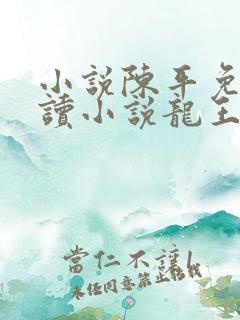 小說陳平免
讀小說龍王
當仁不讓
未经同意禁止转载